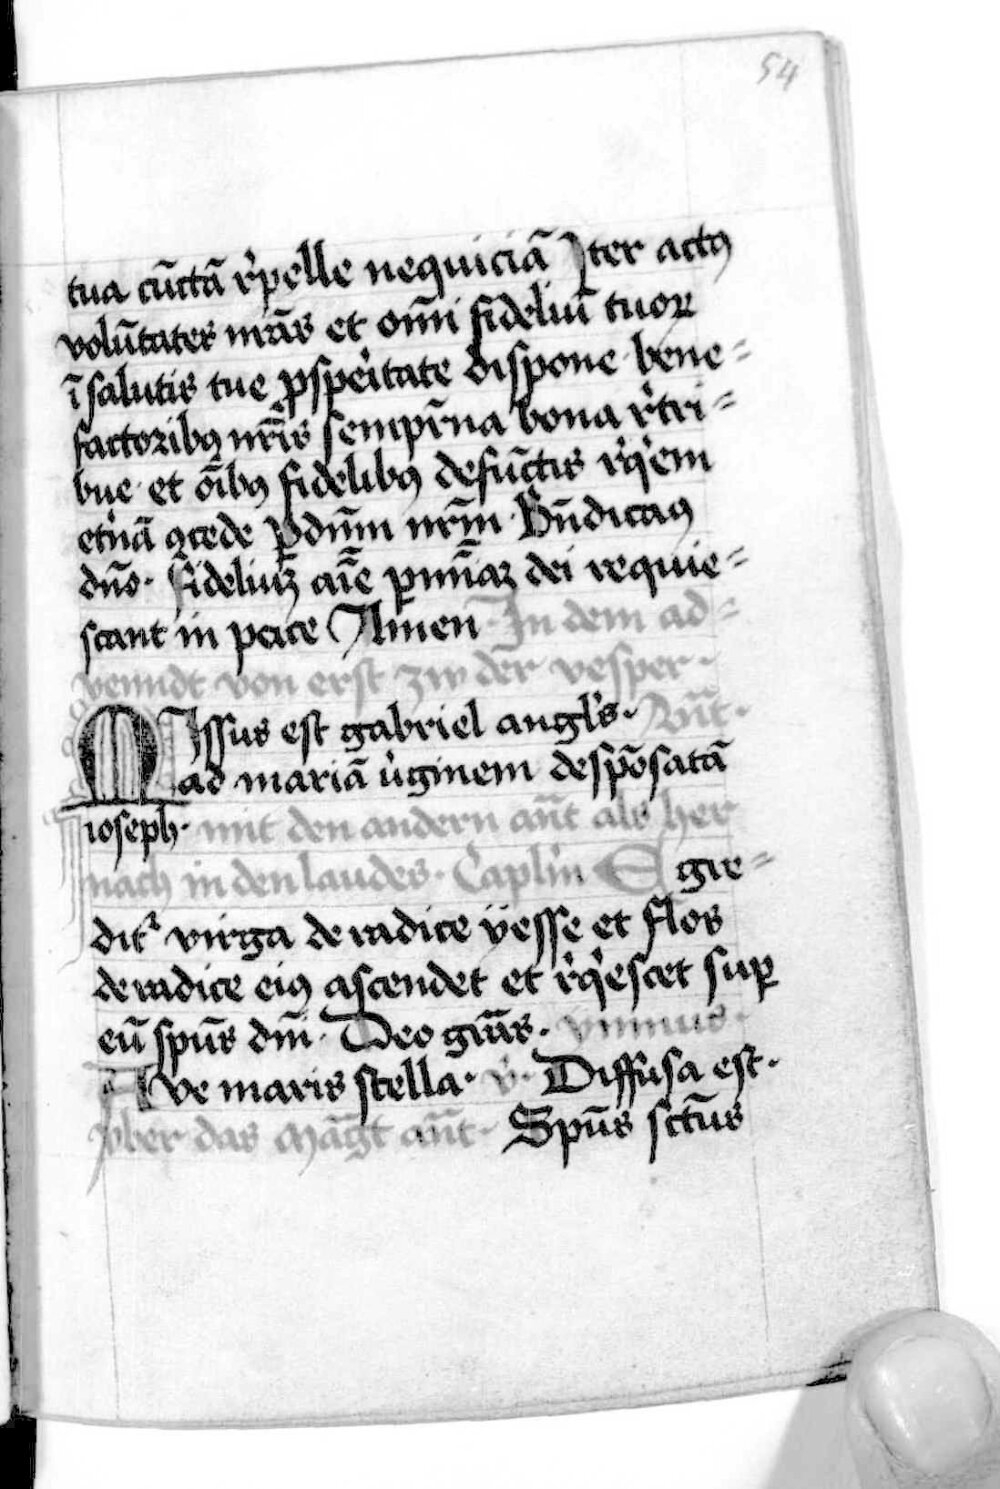 54
tua cūctā r̓pelle nequiciā Iter actꝰ
volūtates nrās et om̄i fideliū tuoꝝ
ī salutis tue ꝓsper̓itate dispone · bene⸗
factoribꝰ nr̄is sempit̄na bona r̓tri⸗
bue · et oībꝰ fidelibꝰ defūctis r̓q̓em
et̓nā ꝯcede P dn̄m nrm̄ · Bn̄dicaꝰ
dn̄o · fideliuꝫ aīe p mīaꝫ dei requie⸗
scant in pace Amen · In dem ad⸗
venndt von erst zw der vesper ·
MIssus est gabriel angl̓s · Ant̄ ·
ad mariā v̓ginem despōsatā
ioseph · mit den andern ant̄ als her
nach in den laudes · Capl̓m Egre⸗
ditᷣ virga de radice ÿesse et flos
de radice eiꝰ ascendet et r̓q̓escet suꝑ
eū spūs dn̄i · Deo grās · ymnus ·
Ave maris stella · v̓ · Diffusa est ·
vber das Māgt̄ ant̄ · Spūs sctūs